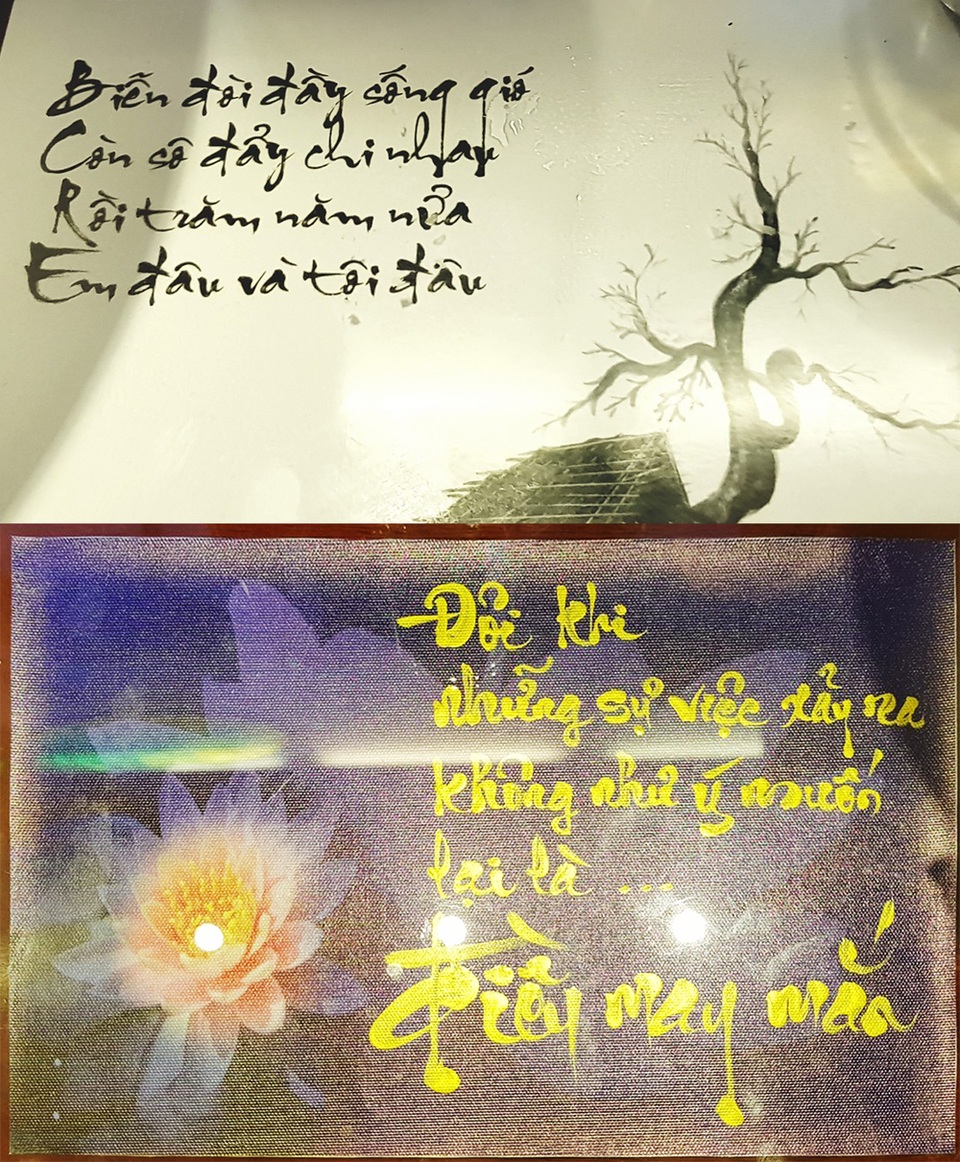 Biển đời đầy sống gió
Còn sô đẩy chi nhau
Rồi trăm năm nữa
Em đâu và tôi đâu
Đôi khi
những sự việc xảy ra
không như ý muốn
lại là ...
điều may mắn